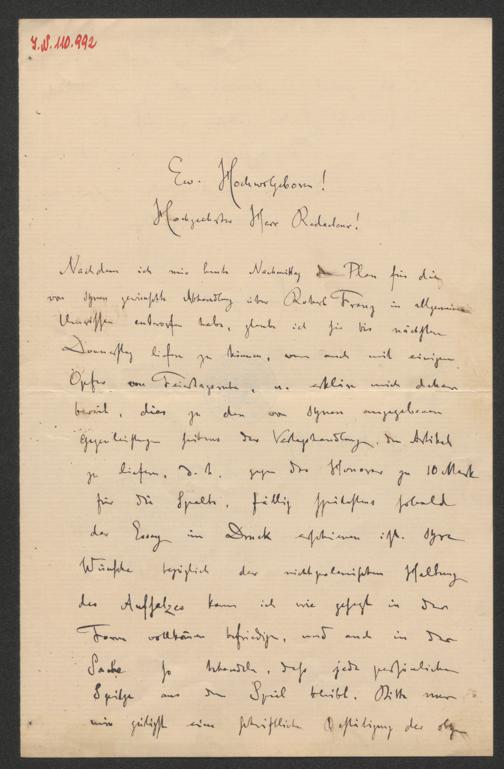 I.N. 110.992
Ew. Hochwolgeboren!
Hochgeehrter Herr Redacteur!
Nachdem ich mir heute Nachmittag den Plan für die
von Ihnen gewünschte Abhandlung über Robert Franz in allgemeinen
Umrissen entworfen habe, glaube ich sie bis nächsten
Donnerstag liefern zu können, wenn auch mit einigen
Opfer von Feiertagsruhe, u. erkläre mich daher
bereit, dies zu den von Ihnen angegebenen
Gegenleistungen seitens der Verlagshandlung, den Artikel
zu liefern, d. h. gegen das Honorar zu 10 Mark
für die Spalte, fällig spätestens sobald
der Essay im Druck erschienen ist. Ihre
Wünsche bezüglich der nichtpolemischen Haltung
des Aufsatzes kann ich wie gesagt in der
Form vollkommen befriedigen, und auch in der
Sache so behandeln, dass jede persönliche
Spitze aus dem Spiel bleibt. Bitte nur
mir gütigst eine schriftliche Bestätigung der obigen